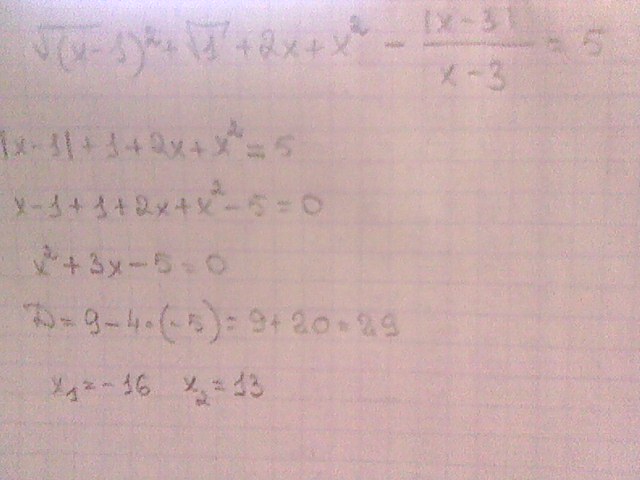 √(x-1)² + √1 + 2x + x² - |x-3| / x-3 = 5
|x-1| + 1 + 2x + x² = 5
x-1+1+2x+x²-5=0
x²+3x-5=0
D=9-4·(-5)=9+20=29
x₁=-16 x₂=13